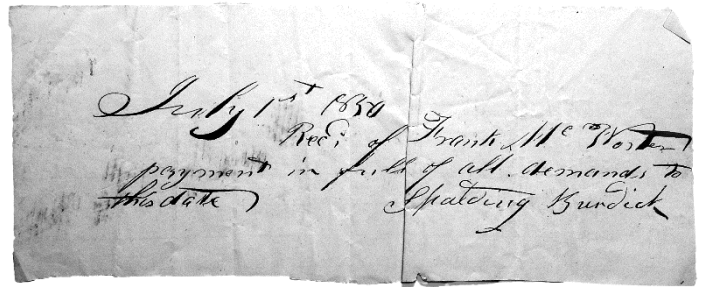 July 1st 1850
Recd of Frank McWorter
payment in full of all demands to
this date Spalding Burdick